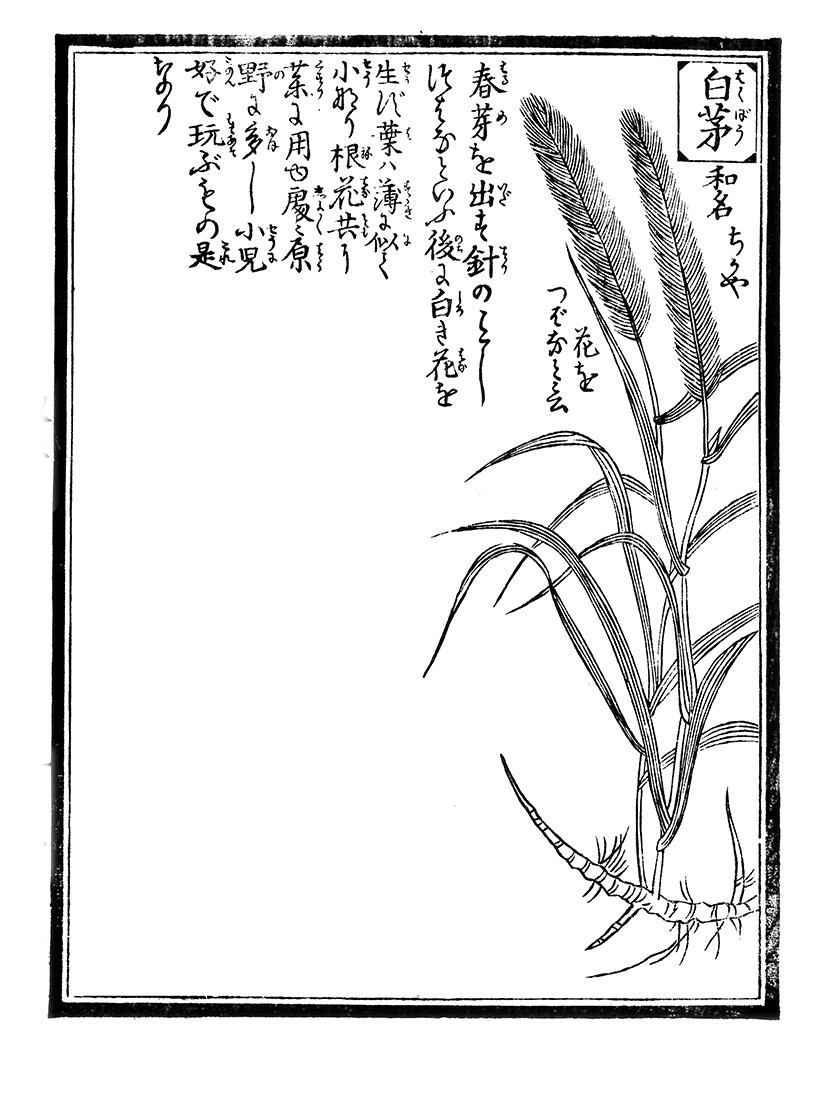 白茅
和名 ちがや
花を
つばなと云
春芽を出す針のごとし
つばなといふ後に白き花を
生ず葉ハ薄に似て
小なり根花共に
薬に用ゆ處々原
野に多し小児
好で玩ぶもの是
なり